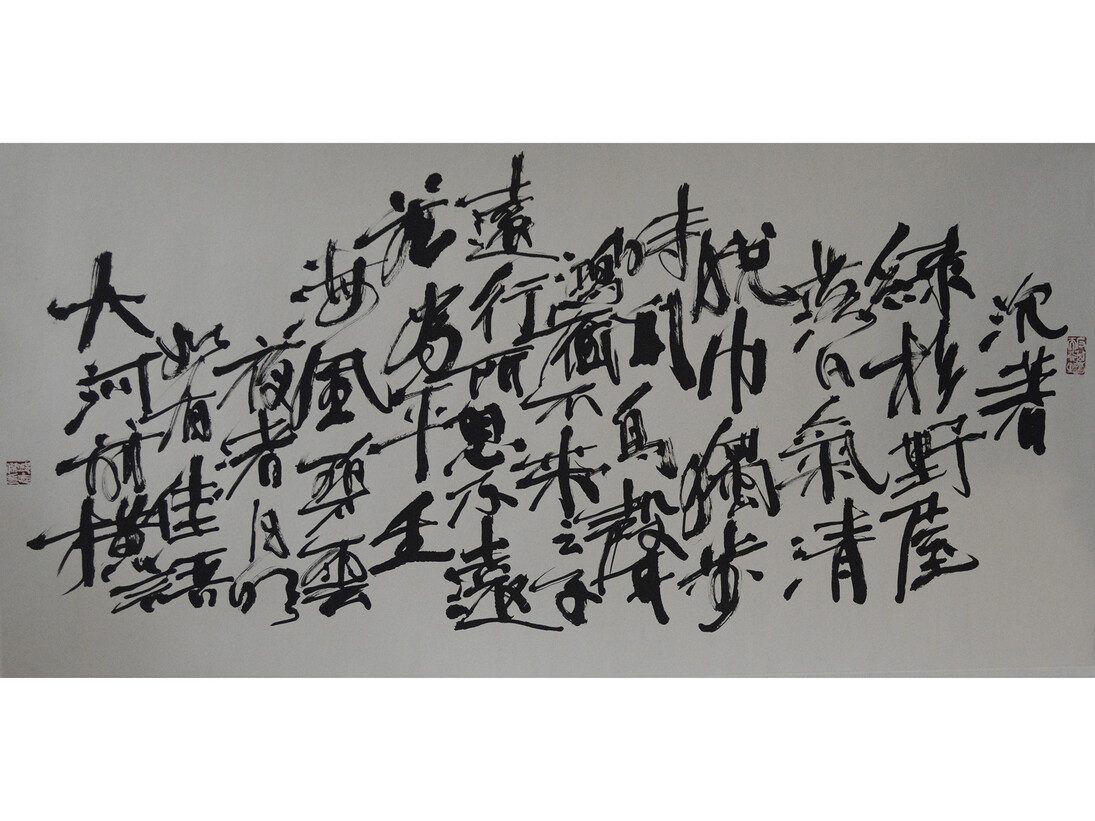 沉著
綠杉野屋
落日氣清
脫巾獨步
時聞鳥聲
鴻雁不来之子
遠行所思不遠
若為平生
海風碧雲
夜渚月明
如有佳語
大河前橫